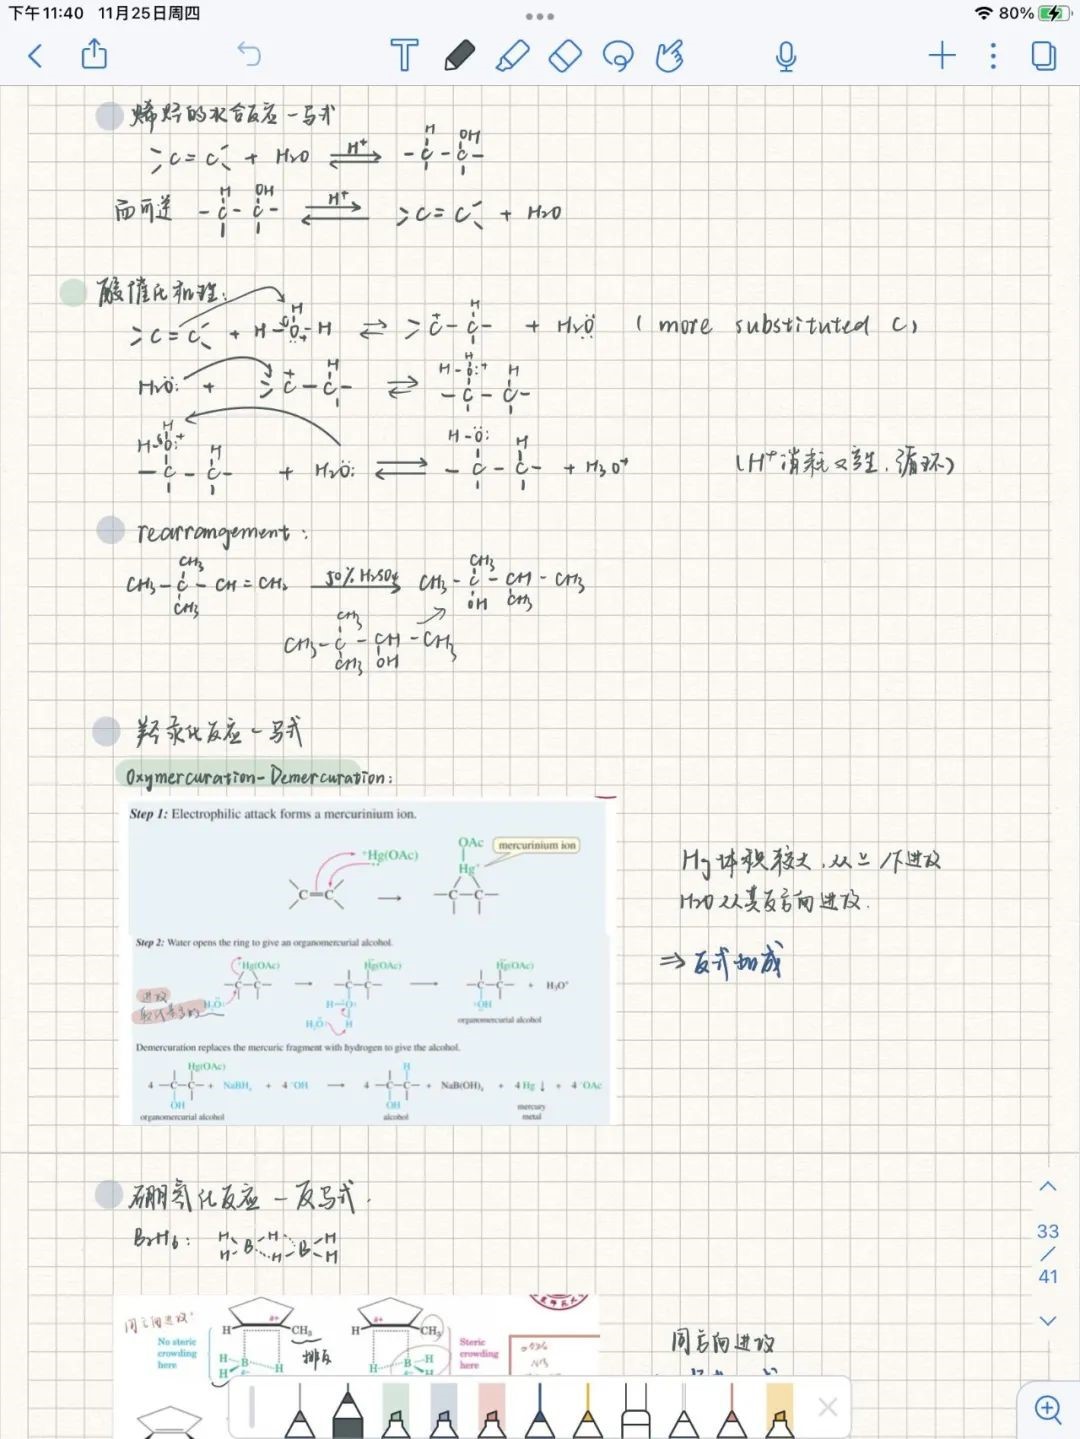 下午11:40 11月25日周四
80%
烯烃的水合反应-马式
>C=C< + H₂O ⇌ H⁺ -C-C- H OH
而可逆 -C-C- H OH ⇌ H⁺ >C=C< + H₂O
酸催化机理:
>C=C< + H-O⁺-H H ⇌ >C⁺-C- H + H₂Ö (more substituted C)
H₂Ö: + >C⁺-C- H ⇌ H-O:⁺ H H -C-C-
H-O:⁺ H H -C-C- + H₂Ö: ⇌ H-Ö: H -C-C- + H₃O⁺ (H⁺消耗又产生,循环)
rearrangement:
CH₃-C-CH=CH₂ CH₃ CH₃ 50% H₂SO₄ CH₃-C-CH-CH₃ CH₃ OH CH₃
CH₃-C-CH-CH₃ CH₃ CH₃ OH
羟汞化反应-马式
Oxymercuration-Demercuration:
Step 1: Electrophilic attack forms a mercurinium ion.
⁺Hg(OAc) OAc mercurinium ion
Hg⁺
C=C -C-C-
Hg体积较大,从上/下进攻
H₂O从其反方向进攻.
⇒反式加成
Step 2: Water opens the ring to give an organomercurial alcohol.
⁺Hg(OAc) Hg(OAc) Hg(OAc)
-C-C- -C-C- -C-C- + H₃O⁺
进攻
取代基多的 H₂Ö: H-O⁺: :OH
H₂Ö: H organomercurial alcohol
Demercuration replaces the mercuric fragment with hydrogen to give the alcohol.
Hg(OAc) H
4 -C-C- + NaBH₄ + 4 ⁻OH → 4 -C-C- + NaB(OH)₄ + 4 Hg↓ + 4 ⁻OAc
OH OH mercury
organomercurial alcohol alcohol metal
硼氢化反应-反马式.
B₂H₆: H H B H H B H H
同方向进攻
No steric crowding here
H CH₃ δ+
排斥
H B H H
H CH₃ δ+
H B H H
Steric crowding here
同方向进攻
33
/
41